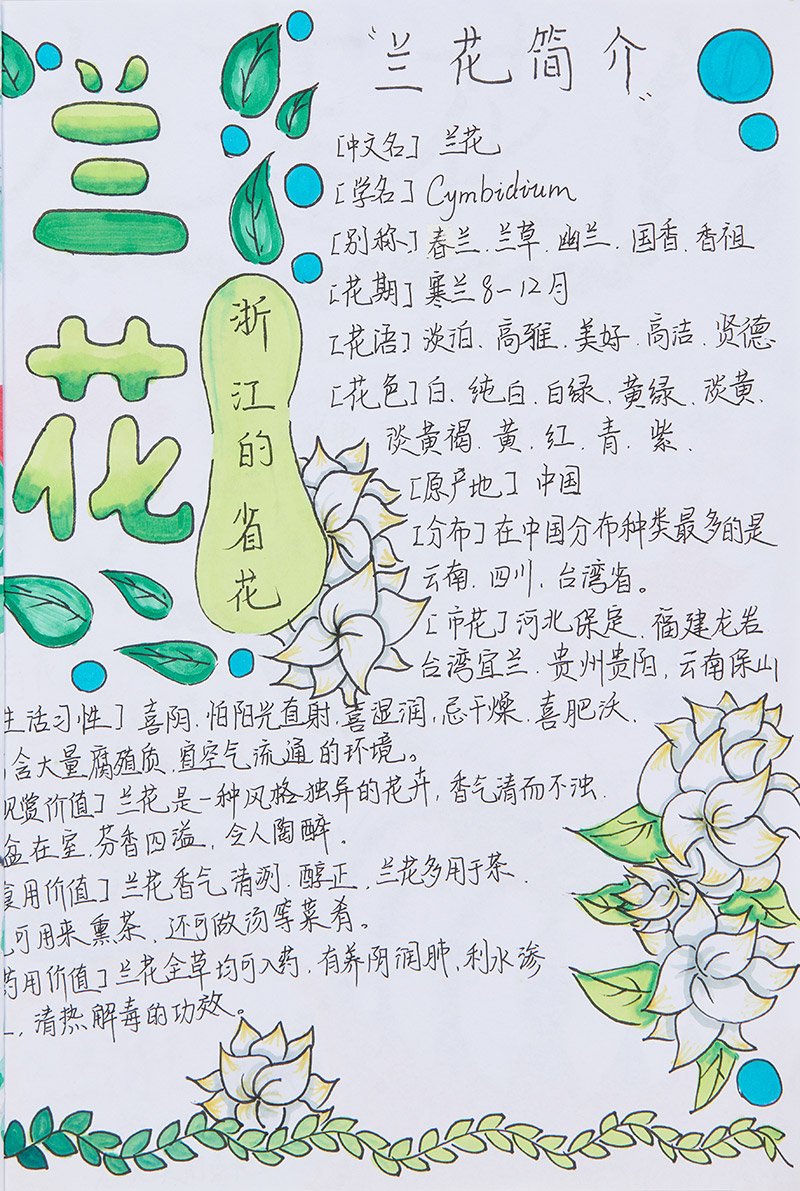 兰花
浙江的省花
"兰花简介"
[中文名] 兰花
[学名] Cymbidium
[别称] 春兰、兰草、幽兰、国香、香祖
[花期] 寒兰8-12月
[花语] 淡泊、高雅、美好、高洁、贤德
[花色] 白、纯白、白绿、黄绿、淡黄、
淡黄褐、黄、红、青、紫、
[原产地] 中国
[分布] 在中国分布种类最多的是
云南、四川、台湾省。
[市花] 河北保定、福建龙岩
台湾宜兰、贵州贵阳、云南保山
生活习性] 喜阴,怕阳光直射,喜湿润,忌干燥、喜肥沃、
含大量腐殖质,宜空气流通的环境。
观赏价值] 兰花是一种风格独异的花卉,香气清而不浊、
盆在室、芬香四溢,令人陶醉。
食用价值] 兰花香气清冽、醇正,兰花多用于茶、
可用来熏茶、还可做汤等菜肴。
药用价值] 兰花全草均可入药,有养阴润肺、利水渗
,清热解毒的功效。